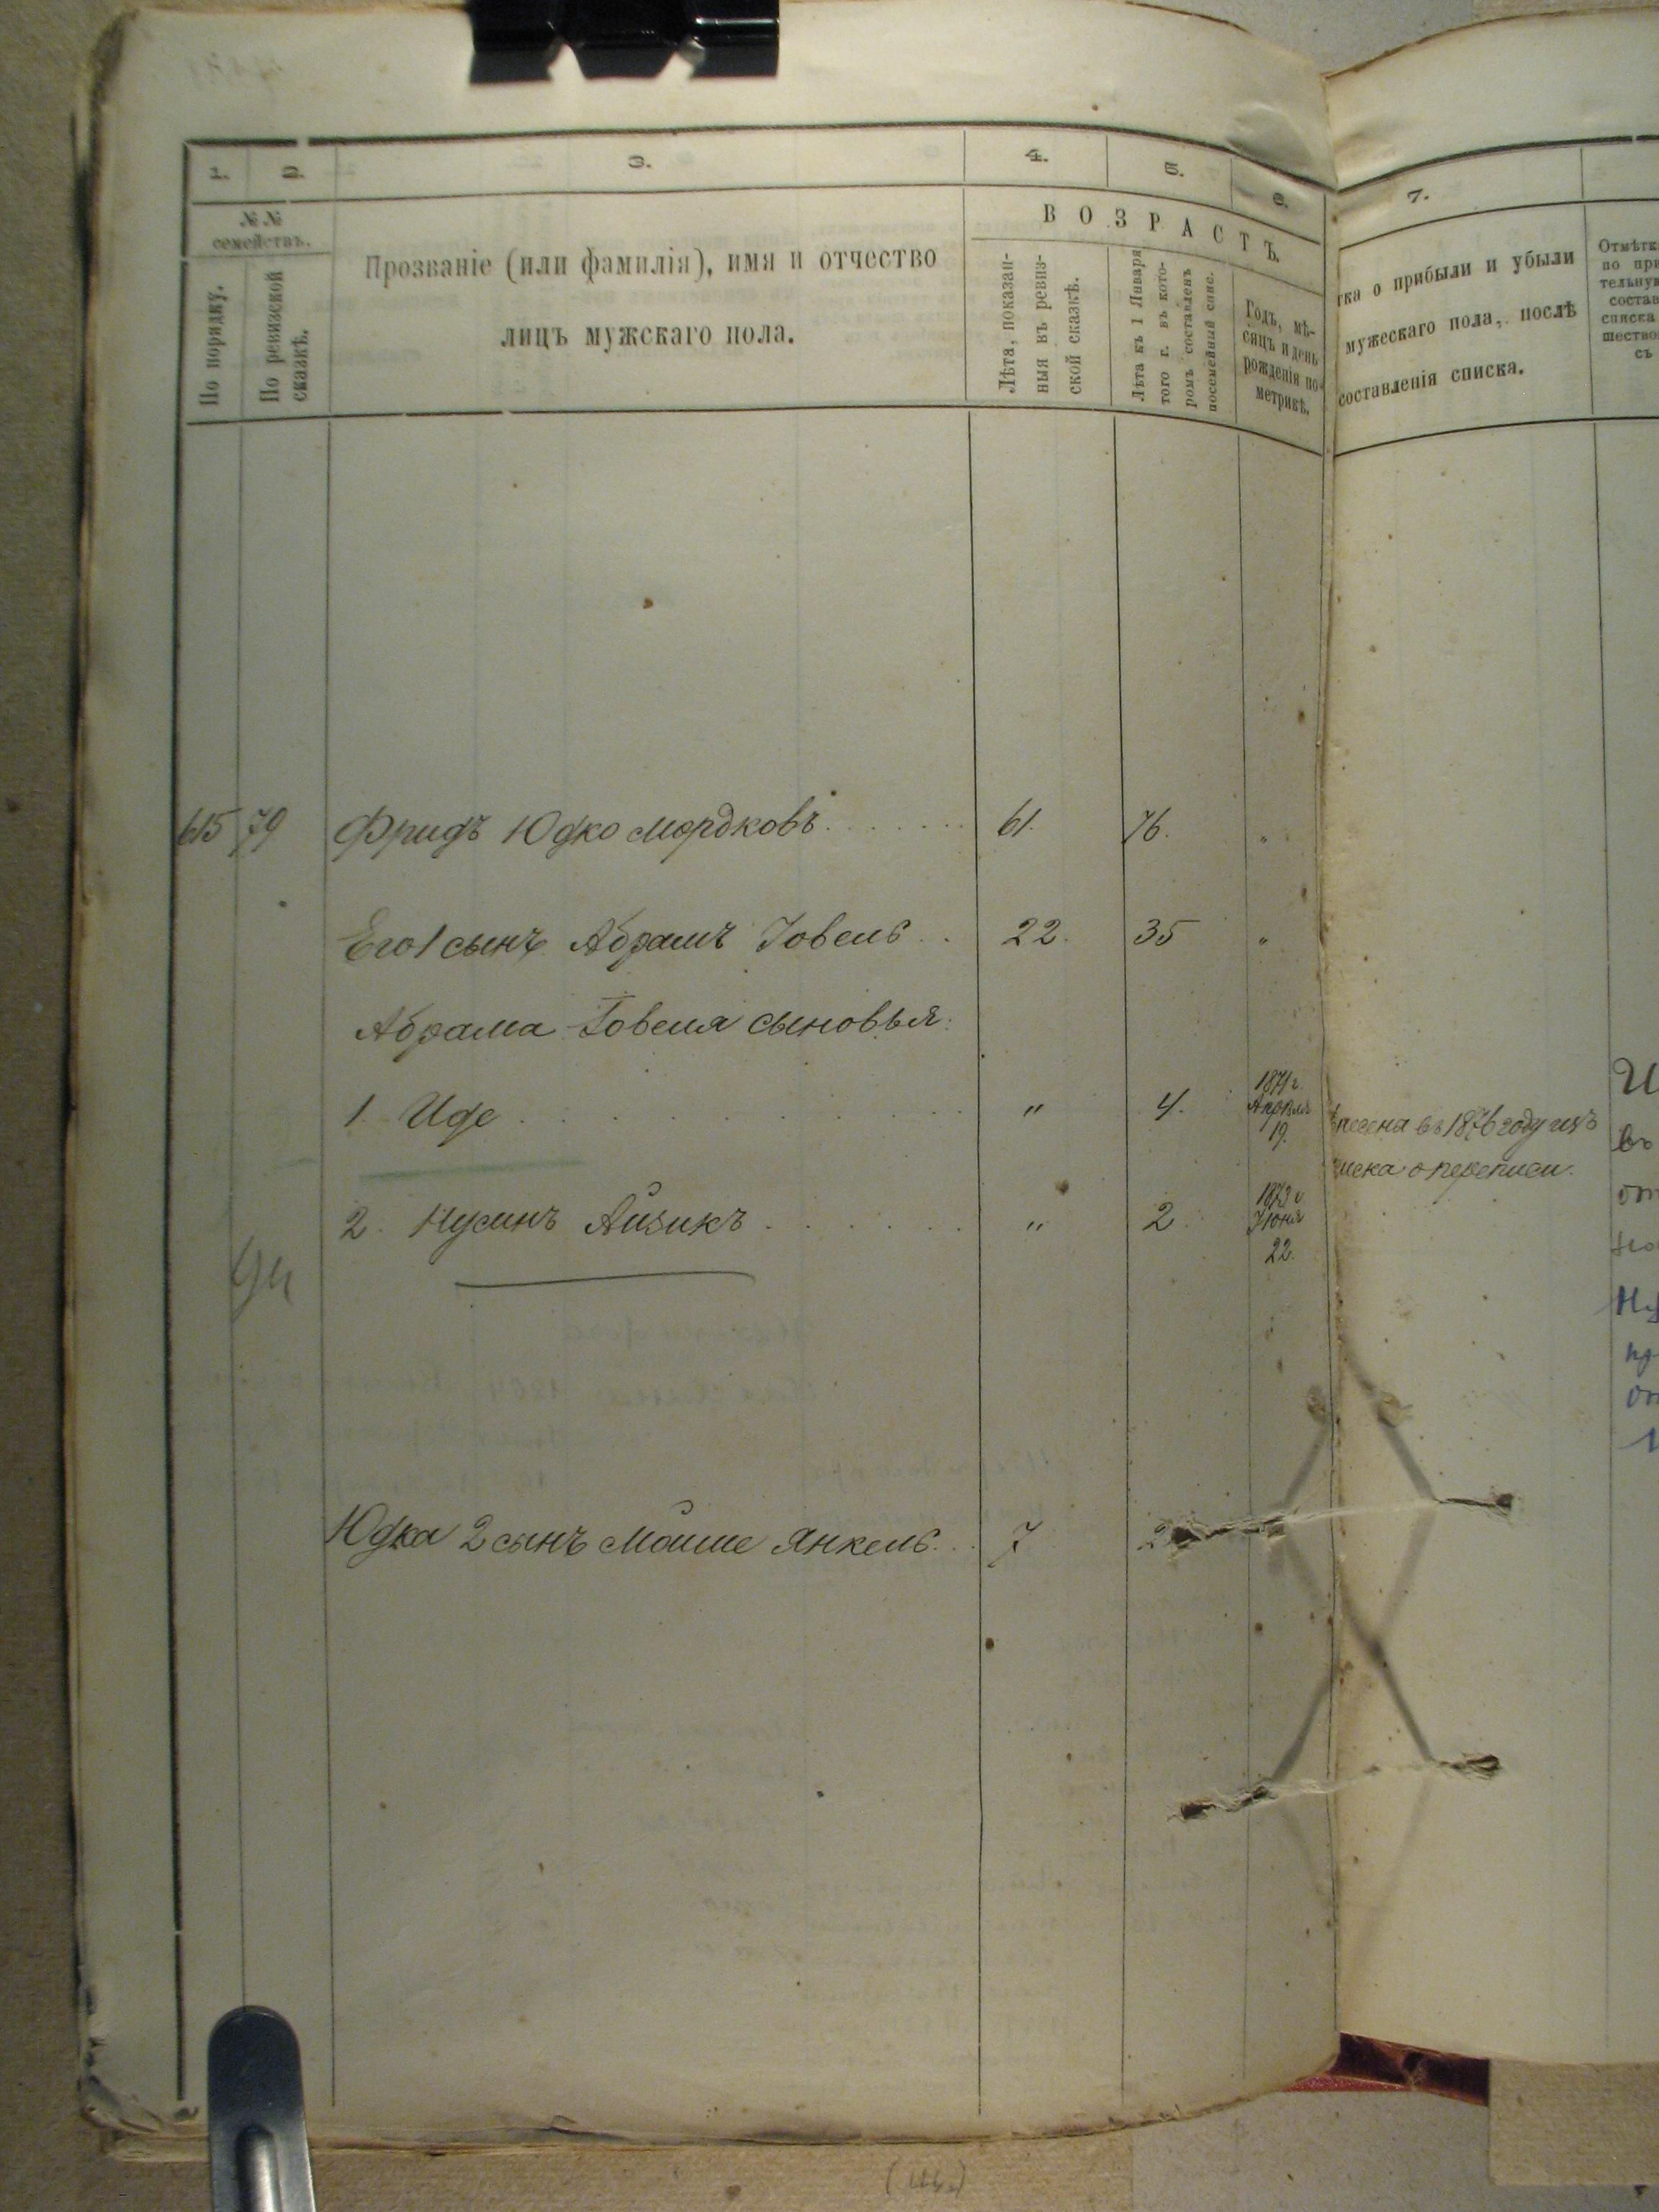 1. 2. 3. 4. 5. 6. 7.
№ № семействъ.
По порядку.
По ревизской сказкѣ.
Прозваніе (или фамилія), имя и отчество
лицъ мужскаго пола.
ВОЗРАСТЪ.
Лѣта, показан-
ныя въ ревиз-
ской сказкѣ.
Лѣта къ 1 Января
того г. въ кото-
ромъ составленъ
посемейный спис.
Годъ, мѣ-
сяцъ и день
рожденія по
метрикѣ.
тка о прибыли и убыли
мужескаго пола, послѣ
составленія списка.
Отмѣтк
по при
тельную
состав
списка
шество
съ
615 79 Фридъ Юдко Мордковъ 61. 76. "
Его 1 сынъ Абрамъ Ιовель 22. 35 "
Абрама Ιовеля сыновья:
1. Иде " 4. 1871 г. Апрѣля 19.
въ 1876 году изъ
писка о переписи.
2. Нусинъ Айзикъ " 2 1873 г. Июня 22.
94
Юдка 2 сынъ Мойше Янкель 7 2